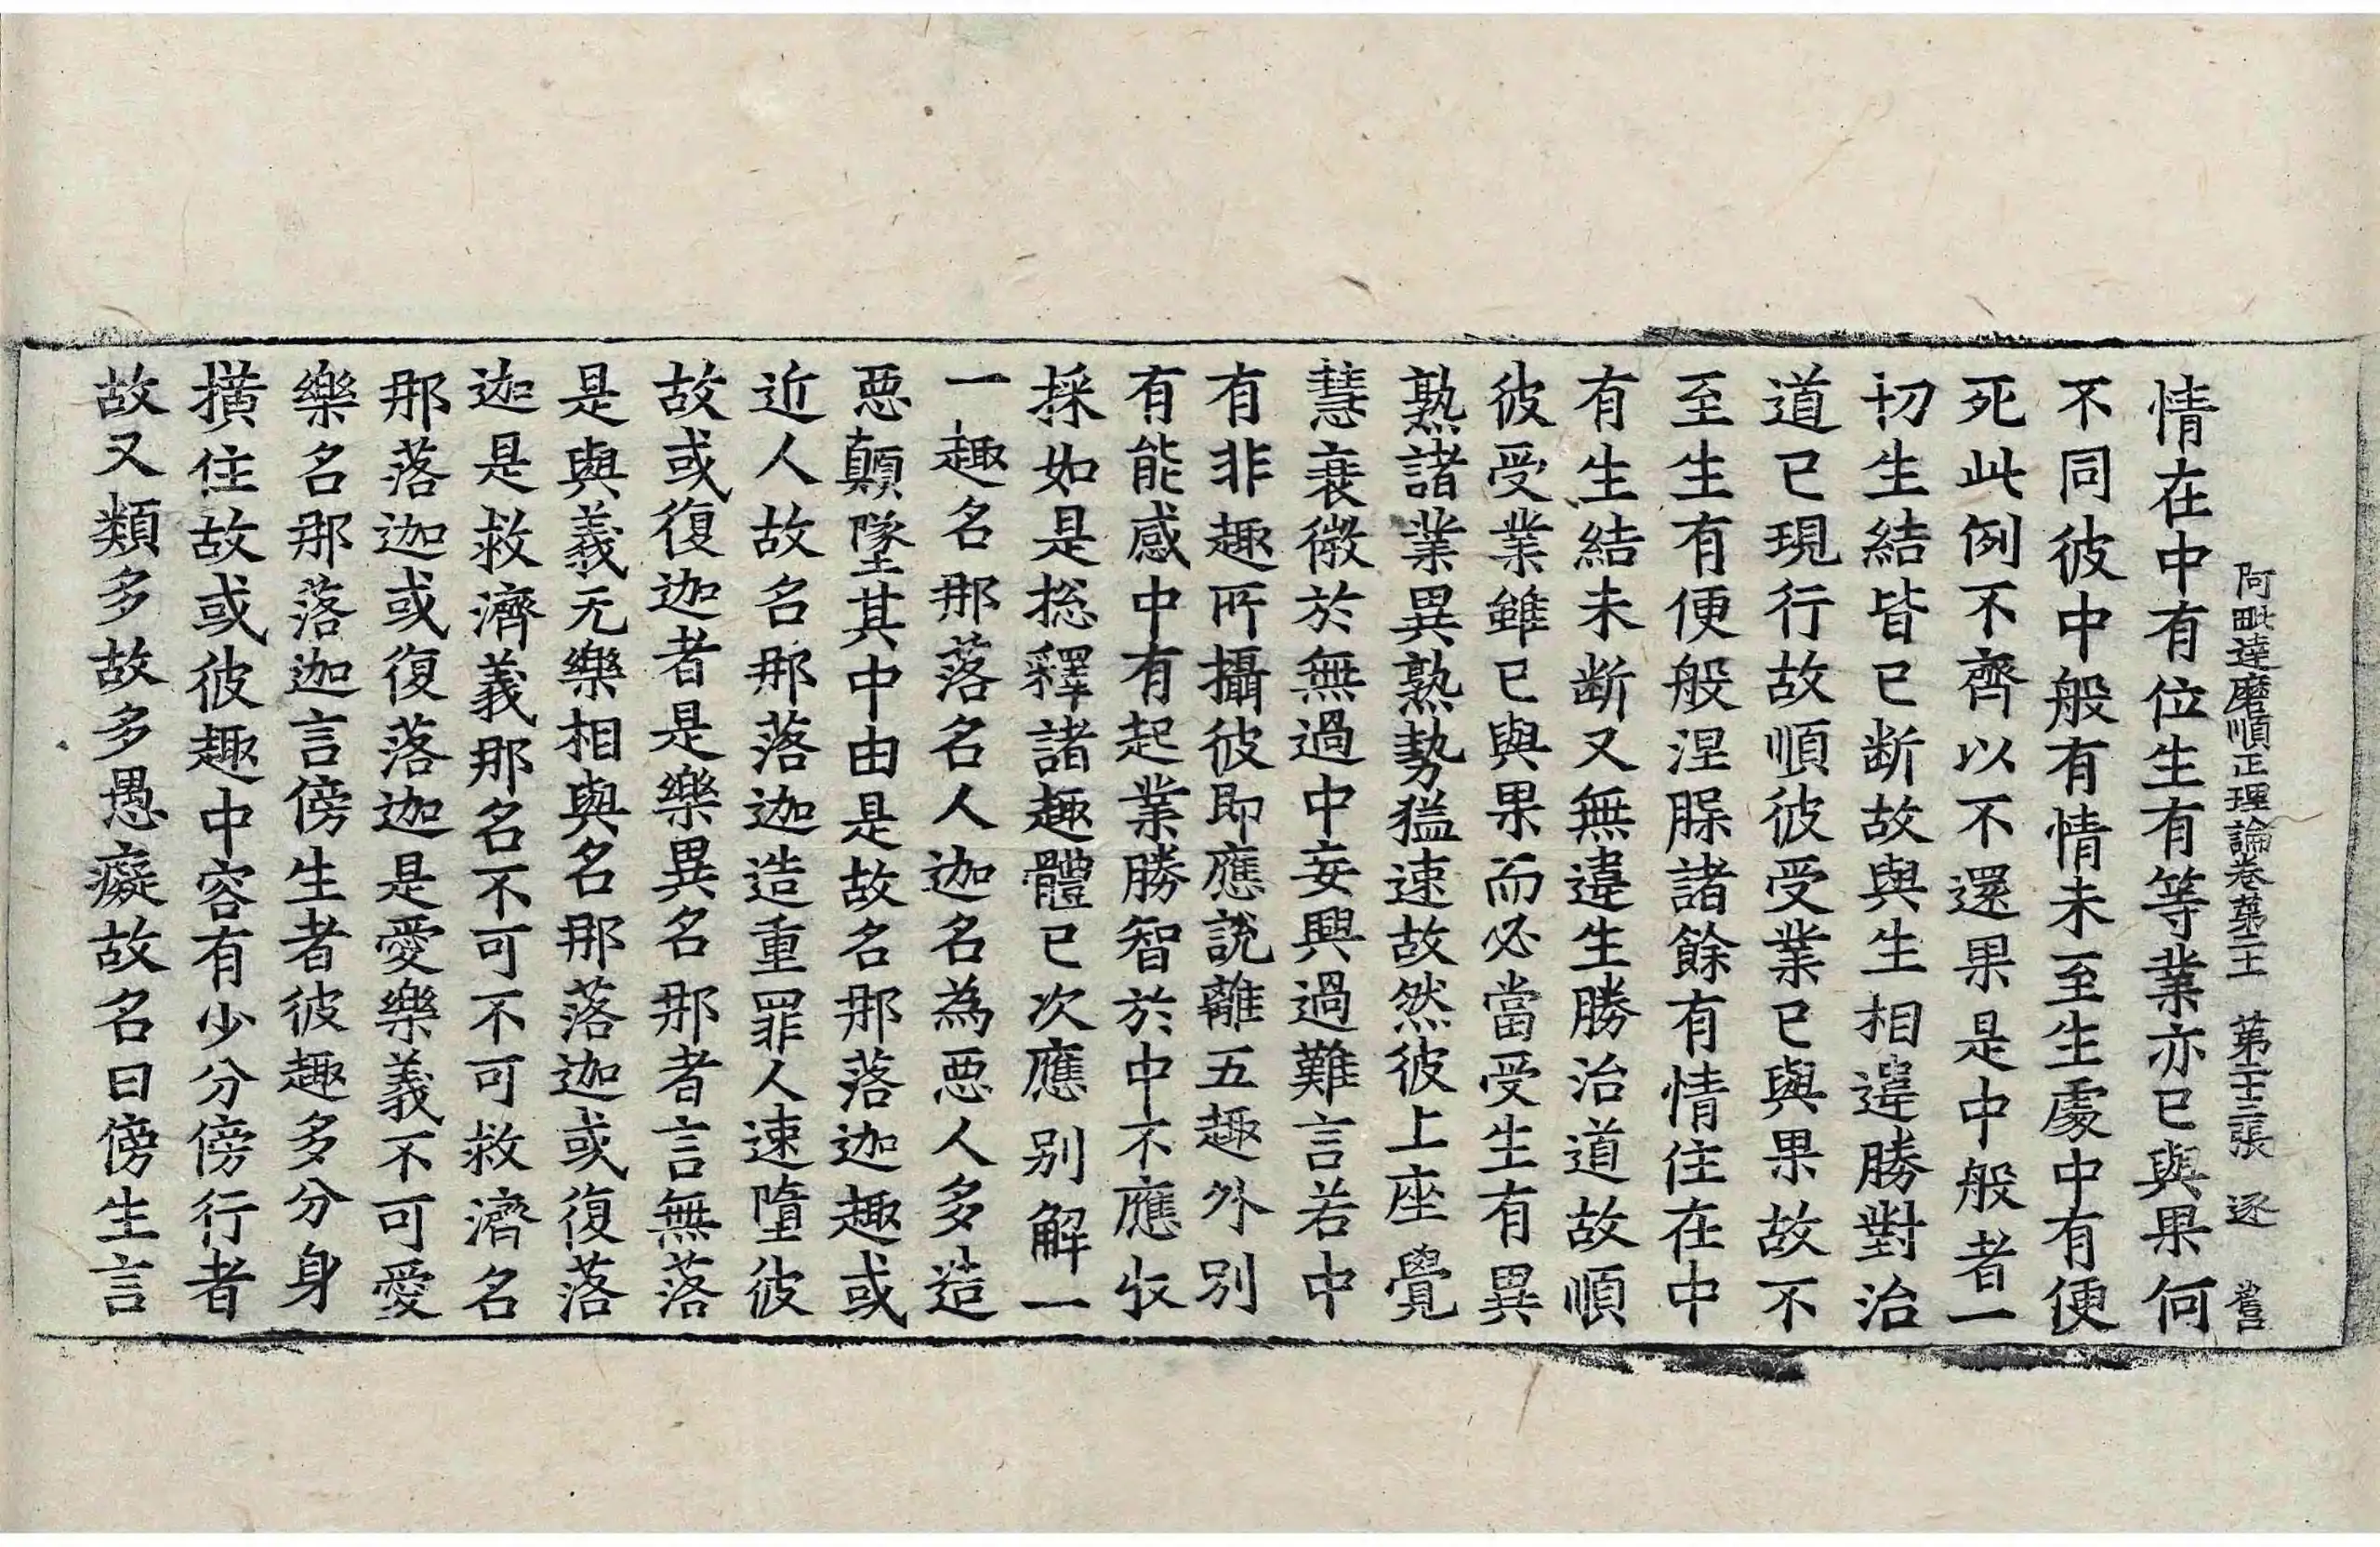 阿毗達磨順正理論卷第二十一 第二十三張 逐
情在中有位生有等業亦已與果何
不同彼中般有情未至生處中有便
死此例不齊以不還果是中般者一
切生結皆已斷故與生相違勝對治
道已現行故順彼受業已與果故不
至生有便般涅脲諸餘有情住在中
有生結未斷又無違生勝治道故順
彼受業雖已與果而必當受生有異
熟諸業異熟勢猛速故然彼上座覺
慧衰微於無過中妄興過難言若中
有非趣所攝彼即應說離五趣外別
有能感中有起業勝智於中不應收
採如是捴釋諸趣體已次應別解一
一趣名那落名人迦名為惡人多造
惡顛墜其中由是故名那落迦趣或
近人故名那落迦造重罪人速墮彼
故或復迦者是樂異名那者言無落
是與義无樂相與名那落迦或復落
迦是救濟義那名不可不可救濟名
那落迦或復落迦是愛樂義不可愛
樂名那落迦言傍生者彼趣多分身
橫住故或彼趣中容有少分傍行者
故又類多故多愚癡故名曰傍生言